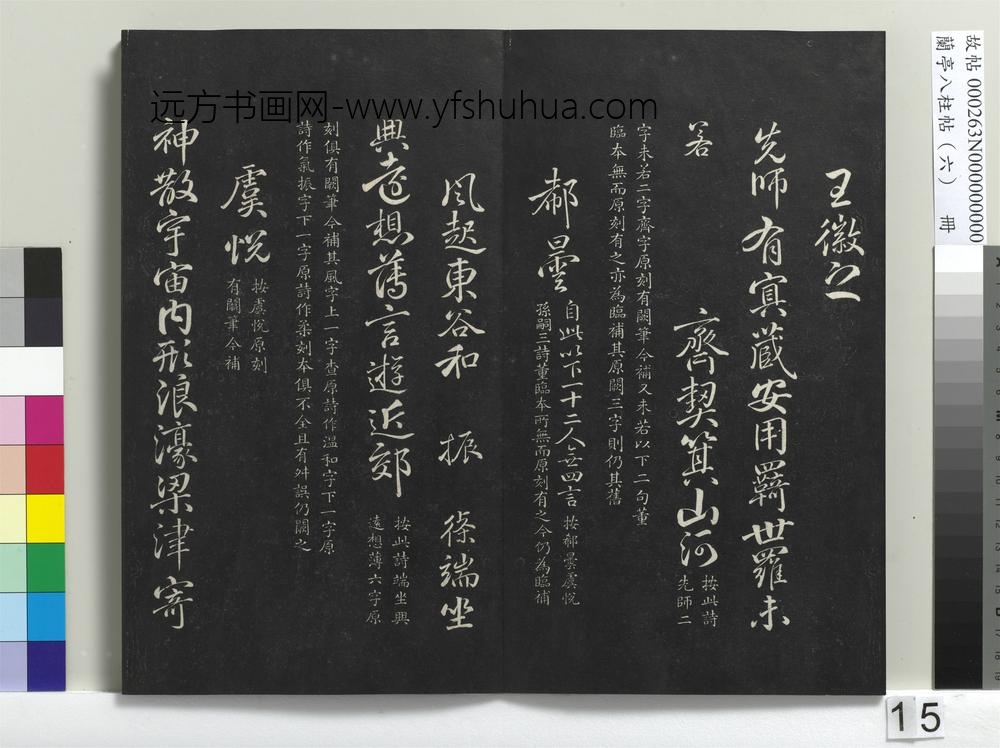 王徽之
先師有冥藏安用羈世羅未
若　齊契箕山河
按此詩
先師二
字未若二字齊字原刻有闕筆今補又未若以下二句董
臨本無而原刻有之亦為臨補其原闕三字則仍其舊
郗曇
自此以下一十二人無四言
按郗曇虞悅
孫嗣三詩董臨本所無而原刻有之今仍為臨補
風起東谷和　振　篠端坐
興遠想薄言遊近郊
按此詩端坐興
遠想薄六字原
刻俱有闕筆今補其風字上一字查原詩作溫和字下一字原
詩作氣振字下一字原詩作柔刻本俱不全且有舛誤仍闕之
虞悅
按虞悅原刻
有闕筆今補
神散宇宙內形浪濠梁津寄
远方书画网-www.yfshuhua.com
故帖000263N000000000
蘭亭八柱帖（六）　冊
15